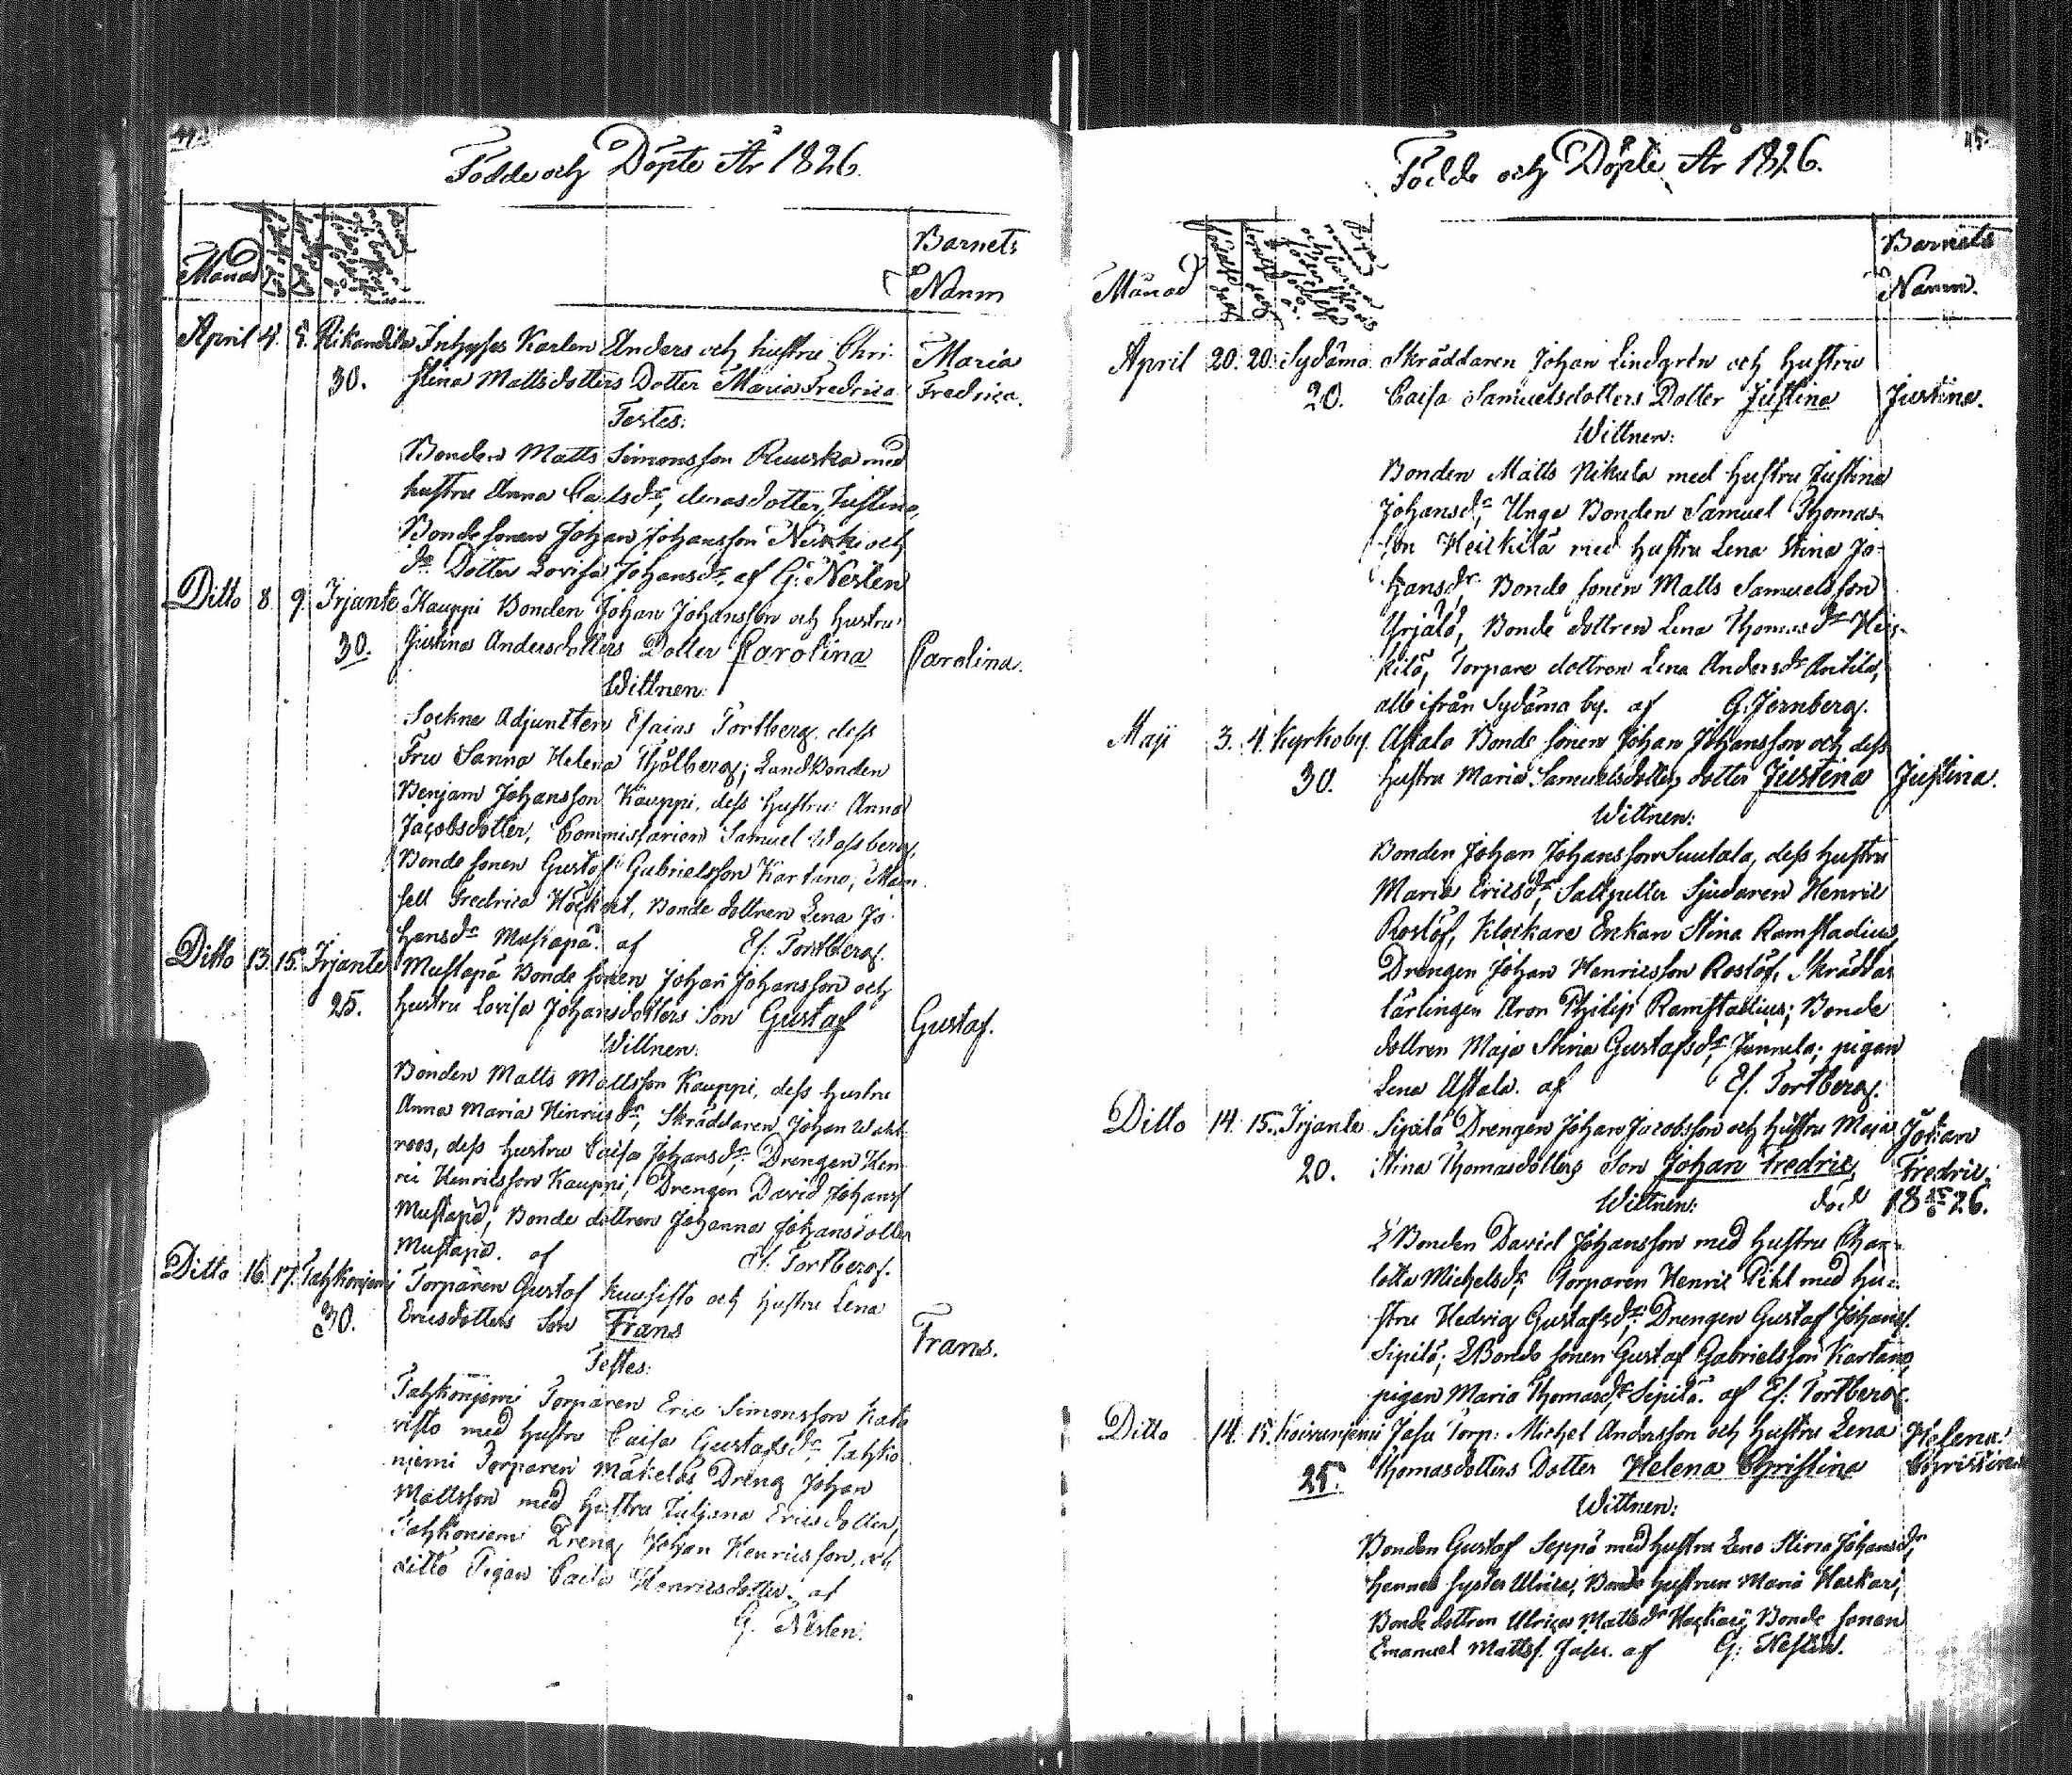 44.
Födde och Döpte År 1826.
Månad
Barnets
Namn
April 4. 5. Inhyses Karlen Anders och hustru Chri-
30. stina Mattsdotters Dotter Maria Fredrica
Maria
Fredrica.
Testes:
Bonden Matts Simonsson Ruuska med
hustru Anna Carlsdr, deras dotter Justina,
Bondesonen Johan Johansson och
do Dotter Lovisa Johansdr. af G. Neslen
Ditto 8. 9. Irjante Kauppi Bonden Johan Johansson och hustru
30. Justina Andersdotters Dotter Carolina
Carolina.
Wittnen:
Sockne Adjuncten Esaias Tortberg, dess
Fru Sanna Helena Landbonden
Benjam Johansson Kauppi, dess hustru Anna
Jacobsdotter, Commissarien Samuel
Bonde sonen Gustaf Gabrielsson Kartano, Mam-
sell Fredrica Bonde dottren Lena Jo-
hansdr Mustapä. af Es. Tortberg.
Ditto 13. 15. Irjante Mustapä Bonde sonen Johan Johansson och
25. hustru Lovisa Johansdotters Son Gustaf
Gustaf.
Wittnen:
Bonden Matts Mattsson Kauppi, dess hustru
Anna Maria Hinricsdr, Skräddaren Johan Wahl-
roos, dess hustru Caisa Johansdr, Drengen Hen-
ric Henricsson Kauppi, Drengen David Johanss.
Mustapä, Bonde dottren Johanna Johansdotter
Mustapä. af Es. Tortberg.
Ditto 16. 17. Tahkoniemi Torparen Gustaf Kuusisto och hustru Lena
30. Ericsdotters Son Frans
Frans.
Testes:
Tahkoniemi Torparen Eric Simonsson Kata-
risto med hustru Caisa Gustafsdr, Tahko-
niemi Torparen Mäkeläs Dreng Johan
Mattsson med hustru Juliana Ericsdotter,
Tahkoniemi Dreng Johan Henricsson, och
ditto Pigan Caisa Henricsdotter. af
G. Neslen.
45.
Födde och Döpte År 1826.
Månad
Barnets
Namn.
April 20. 20. Sydäma Skräddaren Johan Lindgrén och hustru
20. Caisa Samuelsdotters Dotter Justina
Justina.
Wittnen:
Bonden Matts Nikula med hustru Justina
Johansdr, Unge Bonden Samuel Thomas-
son Heickilä med hustru Lena Stina Jo-
hansdr. Bonde sonen Matts Samuelsson
Yrjälä, Bonde dottren Lena Thomasdr Heic-
kilä, Torpare dottren Lena Andersdr Antila,
alle ifrån Sydäma by. af G. Jernberg.
Maji 3. 4. Kyrkoby. Astala Bonde sonen Johan Johansson och dess
30. hustru Maria Samuelsdotters dotter Justina
Justina.
Wittnen:
Bonden Johan Johansson Suutala, dess hustru
Maria Ericsdr, Saltpetter Sjudaren Henric
Roslöf, Klockare Enkan Stina Ramstadius,
Drengen Johan Henricsson Roslöf, Skräddar
lärlingen Aron Philip Ramstadius; Bonde
dottren Maja Stina Gustafsdr, Junnila; pigan
Lena Astala. af Es. Tortberg.
Ditto 14. 15. Irjante Sipilä Drengen Johan Jacobsson och hustru Maja
20. Stina Thomasdotters Son Johan Fredric
Johan
Fredric.
Wittnen: död 18 26.
Bonden David Johansson med hustru Char-
lotta Michelsdr, Torparen Henric Pikl med hu-
stru Hedvig Gustafsdr; Drengen Gustaf Johanss.
Sipilä; Bonde sonen Gustaf Gabrielsson Kartano,
pigan Maria Thomasdr Sipilä. af Es. Tortberg.
Ditto 14. 15. Koivuniemi Jasu Torp: Michel Andersson och hustru Lena
25. Thomasdotters Dotter Helena Christina
Helena
Christina
Wittnen:
Bonden Gustaf Seppä med hustru Lena Stina Johansdr,
hennes syster Ulrica, Bonde hustrun Maria Hackari,
Bonde dottren Ulrica Mattsdr Hackari, Bonde sonen
Emanuel Mattss. Jasu. af G: Neslen.